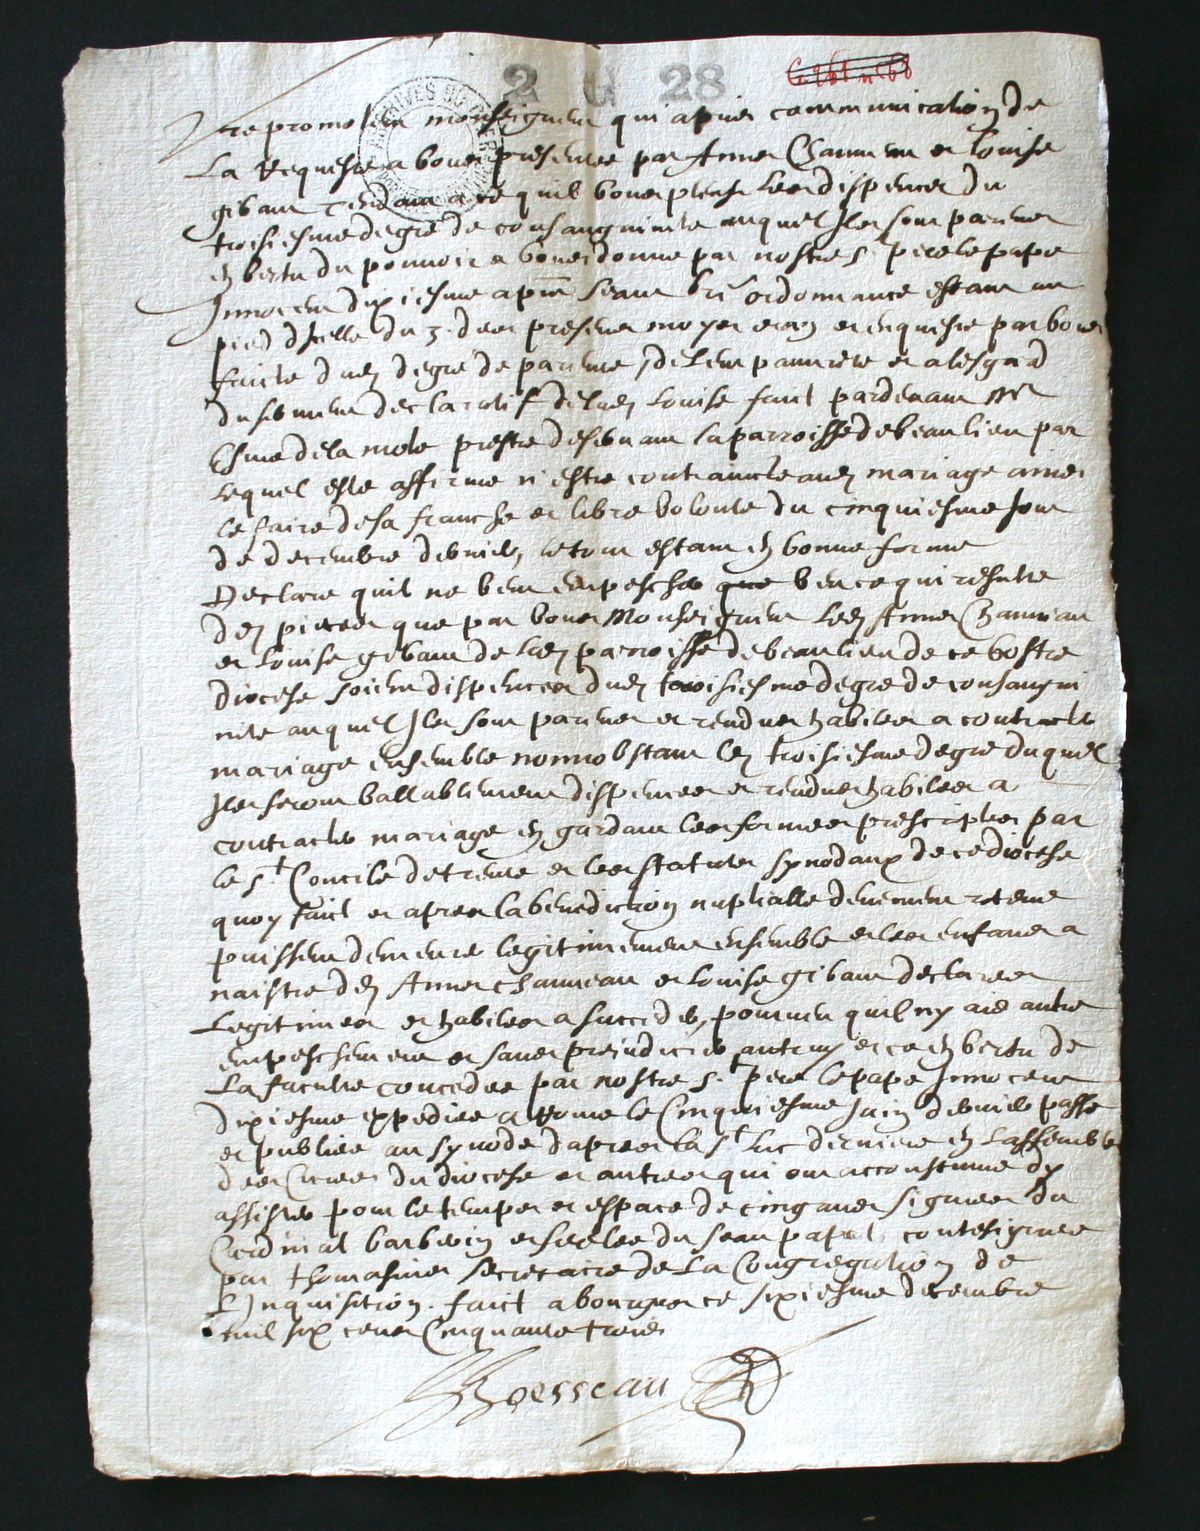 2 G 28
G 261 n° 68
Vre promoteur monseigneur qui a pris communication de
La Requeste a vous presentee par Anne Chauveau et Louise
gibaut tendant a ce quil vous plaise les dispencer du
troisiesme degre de consanguinite auquel Ils sont parens
en vertu du pouvoir a vous donne par nostre S. pere le pape
Innocent dixiesme vre ordonnance estant au
pied dIcelle du 3. des presens moys et an et enqueste par vous
faicte dud degre de parente, de leur pauvrete et a lesgard
du serment declaratif de lad Louise faict pardevant Mr
Esme de la mote prestre deservant la parroisse de beaulieu par
lequel elle afferme n'estre contraincte aud mariage ains
le faire de sa franche et libre volonte du cinquiesme jour
de decembre, le tout estant en bonne forme
Declare quil ne veut empescher que veu ce qui resulte
desd pieces que par vous Monseigneur lesd Anne Chauveau
et Louise gibaut de lad parroisse de beaulieu de ce vostre
diocese soient dispences dud troisiesme degre de consangui
nite auquel Ils sont parens et rendus habiles a contracter
mariage ensemble nonnobstant led troisiesme degre duquel
Ils seront vallablement dispences et rendus habiles a
contracter mariage en gardant les formes prescriptes par
le St Concile de trente et les statuts synodaux de ce diocese
quoy faict et apres la benediction nuptialle deuement receue
puissent demeurer legitimement ensemble et les enfans a
naistre desd Anne chauveau et Louise gibaut declares
Legitimes et habiles a succeder, pourveu quil ny aie autre
empeschement et sans prejudicier autruy et ce en vertu de
La faculte concedee par nostre St pere le pape Innocent
dixiesme expediee a Rome le Cinquiesme Juin dernier passe
et publiee au synode dapres la St Luc derniere en Lassemblee
des Cures du diocese et autres qui ont accoustume dy
assister pour le temps et espace de cinq ans signee du
Cardinal barberin et scelee du seau papal, contesignee
par thomasius secretaire de La Congregation de
LInquisition. faict a bourges ce sixiesme decembre
mil six cens Cinquante trois
Boesseau